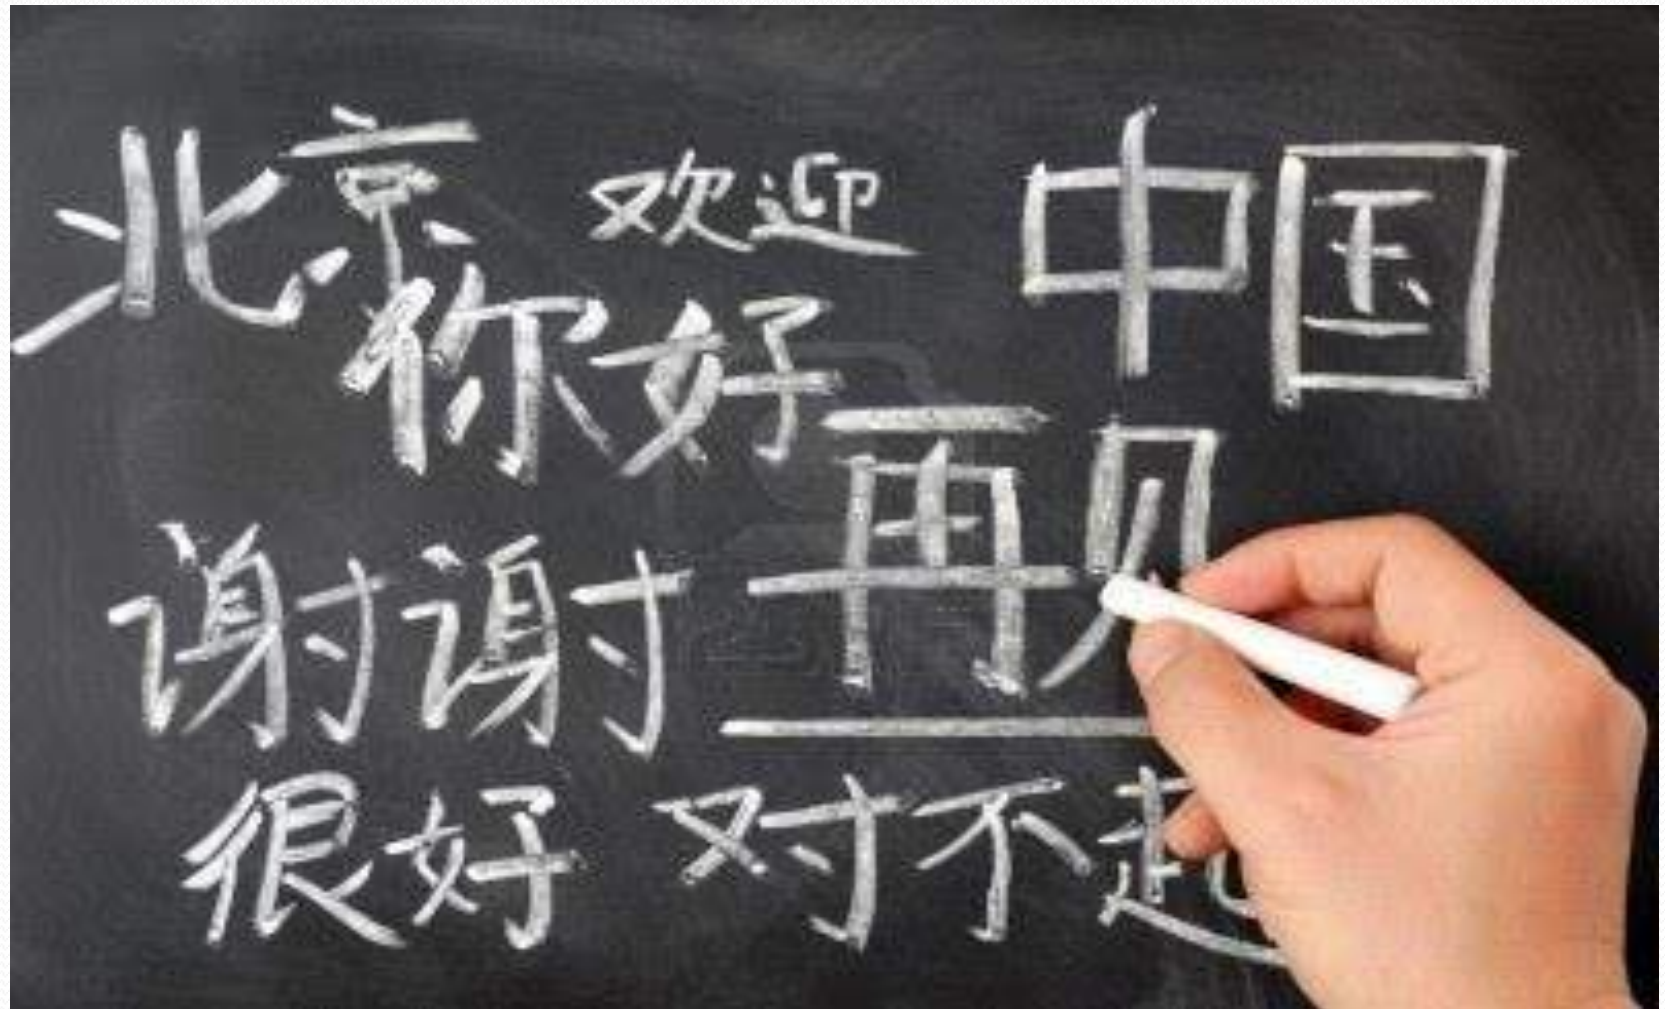 北京 欢迎 中国
你好
再见
谢谢
很好 对不起